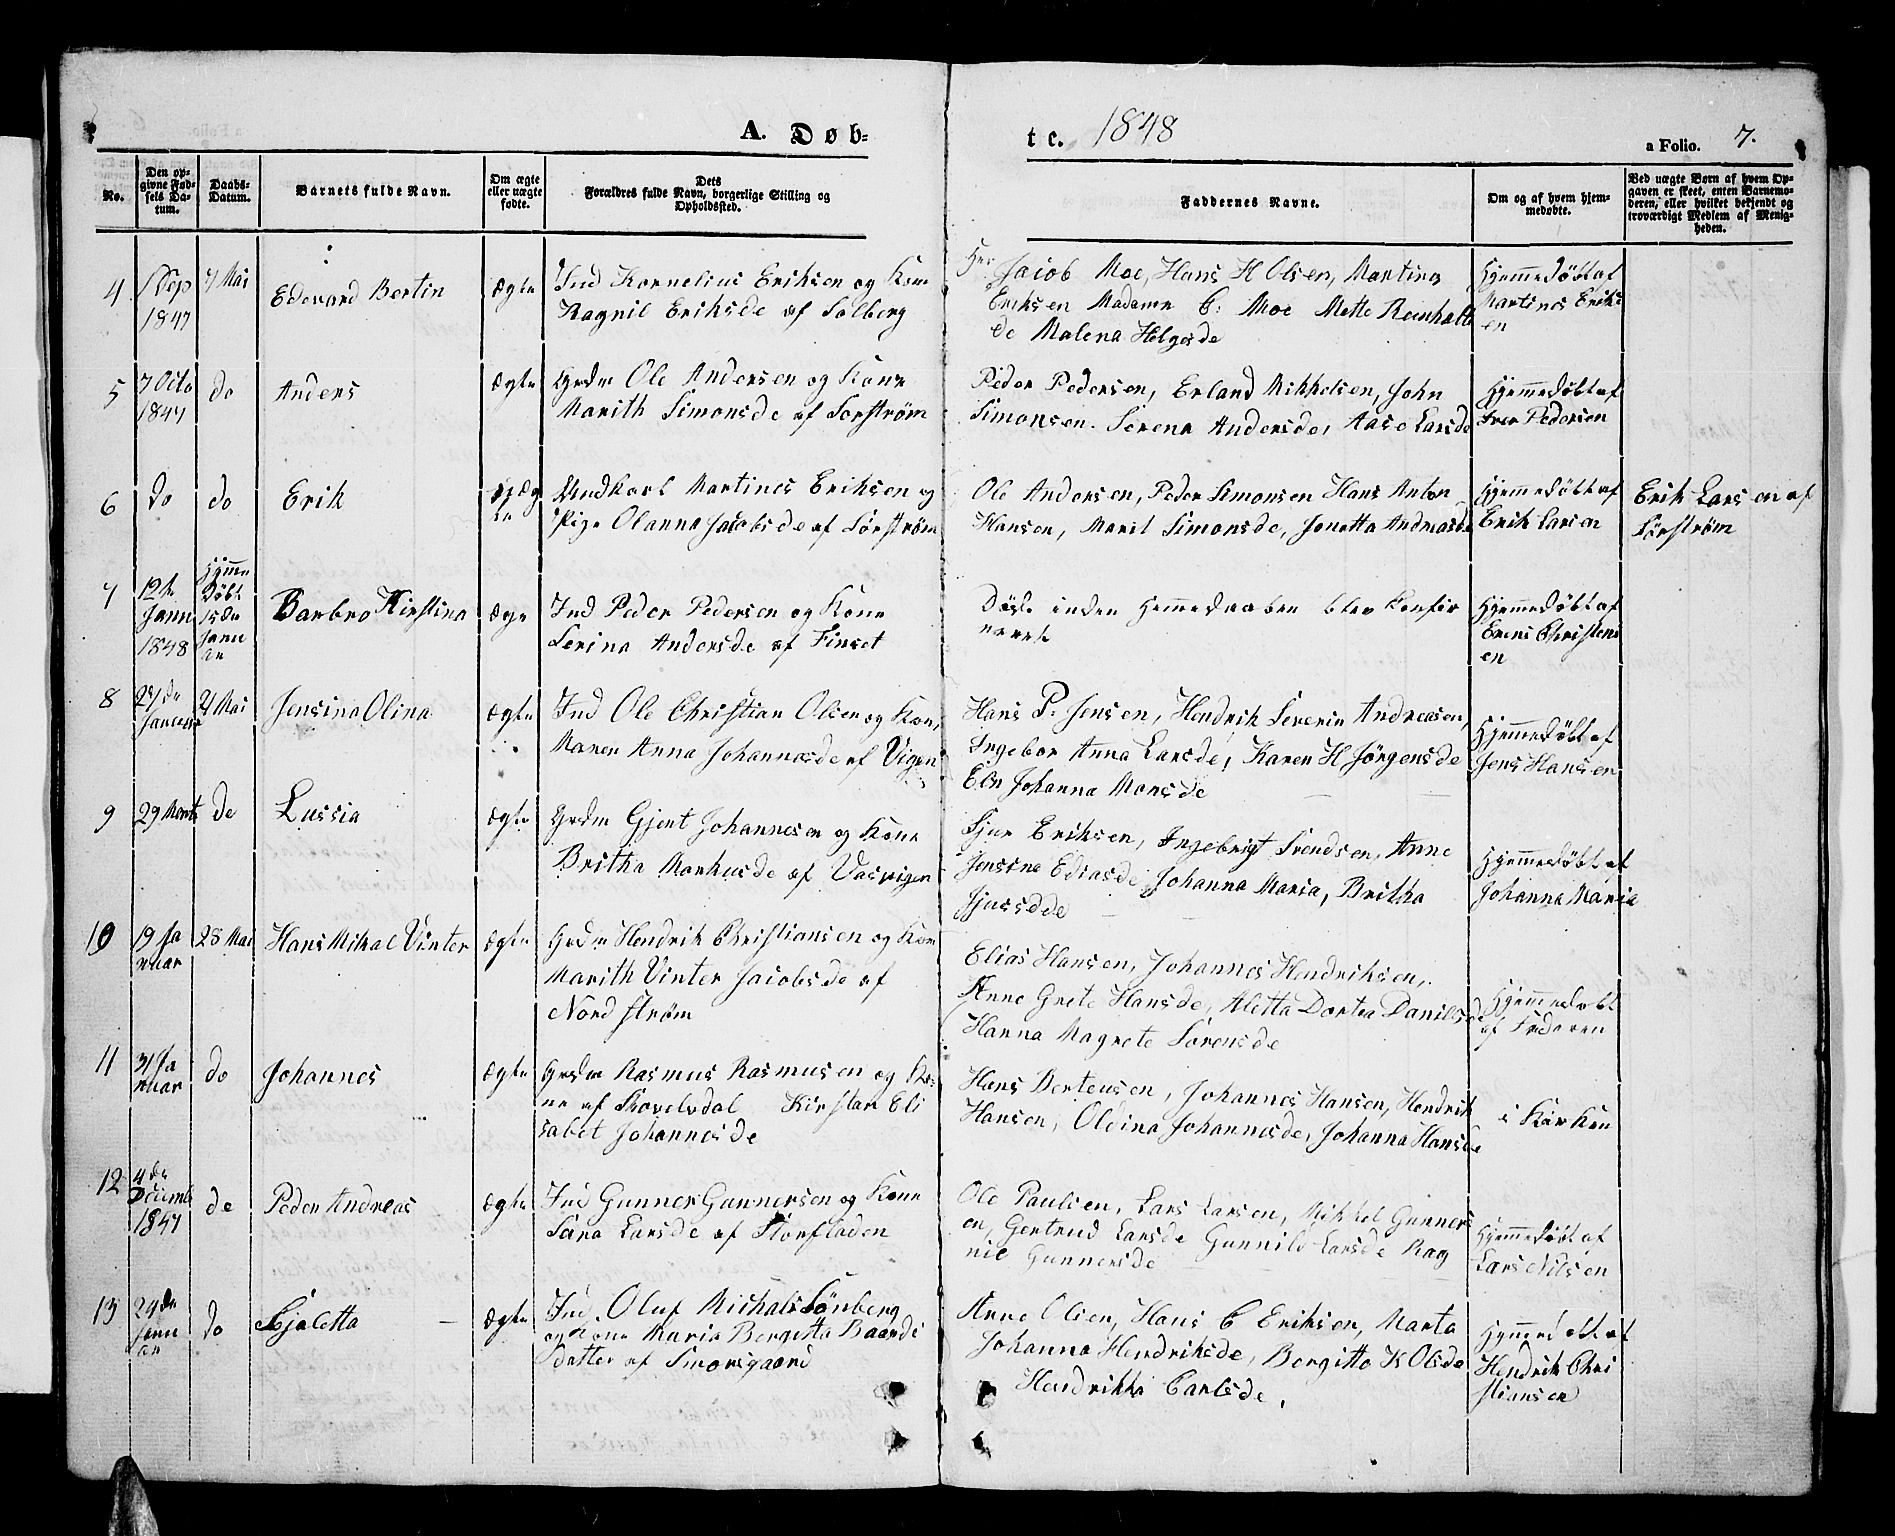 A. Døb-
t e. 1848
a Folio. 7.
No.
Den op-
givne Fød-
sels Da-
tum.
Daabs-
Datum.
Barnets fulde Navn.
Om ægte
eller uægte
fødte.
Dets
Forældres fulde Navn, borgerlige Stilling og
Opholdssted.
Faddernes Navne.
Om og af hvem hjem-
medøbte.
Ved uægte Børn af hvem Op-
gaven er skeet, enten Barnemo-
deren, eller hvilket bekjendt og
troværdigt Medlem af Menig-
heden.
4
1 Sep
1847
7 Mai
Edevard Bertin
Ægte
Ind Kornelius Eriksen og Kone
Ragnil Eriksde af Solberg
Hr: Jacob Moe, Hans H Olsen, Martinus
Eriksen Madame C: Moe Mette Reinholt
de Malena Helgesde
Hjemmedøbt af
Martines Eriks
en
5
7 Octo
1847
do
Anders
Ægte
Grdm Ole Andersen og Kone
Marith Simonsde af Sorstrøm
Peder Pedersen, Erland Mikkelsen, John
Simonsen. Serena Andersde, Aase Larsde
Hjemmedøbt af
Iver Pedersen
6
do
do
Erik
Ungkarl Martines Eriksen og
Pige Olanna Jacobsde af Sørstrøm
Ole Andersen, Peder Simonsen Hans Anton
Hansen, Maret Simonsde, Jonetta Andreasde
Hjemmedøbt af
Erik Larsen
Erik Larsen af
Sørstrøm
7
12te
Jann
1848
Hjemme
døbt
15de
Janu
ar
Barbro Kirstina
Ægte
Ind Peder Pedersen og Kone
Serina Andersde af Finset
Døde inden Hemmedaaben blev Konfir
meret
Hjemmedøbt af
Erens Christens
en
8
27de
Januar
21 Mai
Jensina Olina
Ægte
Ind Ole Christian Olsen og Kone
Maren Anna Johannesde af Vigen
Hans P. Jensen, Hendrik Severin Andreasen,
Ingebor Anna Larsde, Karen H Jørgensde
Elen Johanna Monsde
Hjemmedøbt af
Jens Hansen
9
29 Marts
do
Lussia
Ægte
Grdm Gjert Johannesen og Kone
Britha Markusde af Vasvigen
Sjur Eriksen, Ingebrigt Svendsen, Anne
Jensine Ediasde, Johanna Maria, Britha
Sjursdde
Hjemmedøbt af
Johanna Maria
10
19 Ja
nuar
28 Mai
Hans Mikal Vinter
Ægte
Grdm Hendrik Christiansen og Kone
Marith Vinter Jacobsde af
Nordstrøm
Elias Hansen, Johannes Hendriksen,
Anne Grete Hansde, Aletta Dortea Danilsde
Hanna Magrete Sørensde
Hjemmedøbt
af Faderen
11
31 Ja
nuar
do
Johannes
Ægte
Grdm Rasmus Rasmusen og Ko-
ne af Skovelvdal Kirsten Eli
sabet Johannesde
Hans Bertensen, Johannes Hansen, Hendrik
Hansen, Oldina Johannesde, Johanna Hansde
i Kirken
12
4de
Decemb
1847
do
Peder Andreas
Ægte
Ind Gunner Gunnersen og Kone
Seina Larsde af Storfladen
Ole Paulsen, Lars Larsen, Mikkel Gunners
en, Gertrud Larsde Gunnild Larsde Rag
nil Gunnersde
Hjemmedøbt af
Lars Nilsen
13
29de
Janu
ar
do
Sjaletta
Ægte
Ind. Oluf Michals Lønberg
og Kone Maria Bergitta Baards
datter af Smørsgaard
Arne Olsen, Hans C Eriksen, Marta
Johanna Hendriksde, Bergitte K Olsde
Hendrikka Carlsde,
Hjemmedøbt af
Hendrik Chri
stiansen